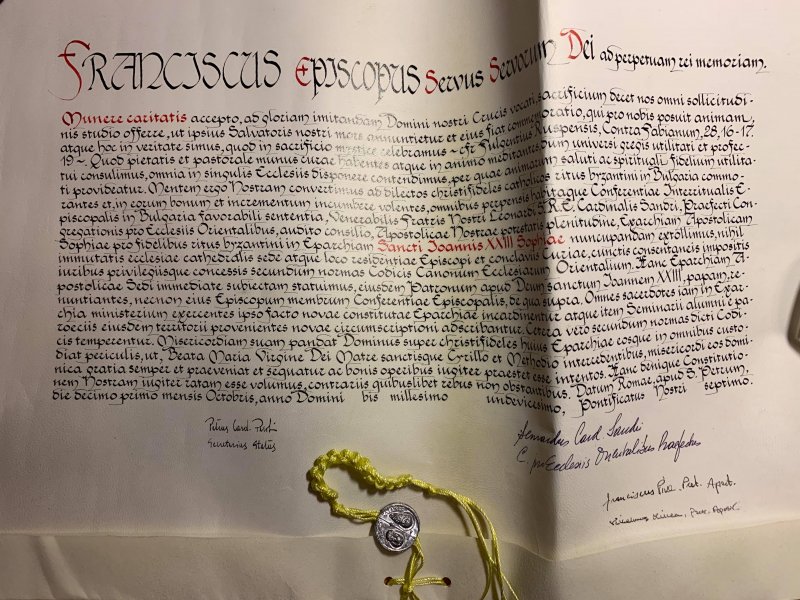 FRANCISCUS EPISCOPUS SERVUS SERVORUM DEI ad perpetuam rei memoriam.
Munere caritatis accepto, ad gloriam imitandam Domini nostri Crucis vocati, sacrificium decet nos omni sollicitudi-
nis studio offerre, ut ipsius Salvatoris nostri mors annuntietur et eius fiat commemoratio, qui pro nobis posuit animam,
atque hac in veritate simus, quod in sacrificio mystice celebramus ~ cfr. Fulgentius Ruspensis, Contra Fabianum, 28, 16-17.
19 ~. Quod pietatis et pastorale munus curae habentes atque in animo meditantes dum universi gregis utilitati et profec-
tui consulimus, omnia in singulis Ecclesiis disponere contendimus, per quae animarum saluti ac spirituali fidelium utilita-
ti provideatur. Mentem ergo Nostram convertimus ad dilectos christifideles catholicos ritus byzantini in Bulgaria commo-
rantes et, in eorum bonum et incrementum incumbere volentes, omnibus perpensis habitaque Conferentiae Interritualis E-
piscopalis in Bulgaria favorabili sententia, Venerabilis Fratris Nostri Leonardi S.R.E. Cardinalis Sandri, Praefecti Con-
gregationis pro Ecclesiis Orientalibus, audito consilio, Apostolicae Nostrae potestatis plenitudine, Exarchiam Apostolicam
Sophiae pro fidelibus ritus byzantini in Eparchiam Sancti Ioannis XXIII Sophiae nuncupandam extollimus, nihil
immutatis ecclesiae cathedralis sede atque loco residentiae Episcopi et conclavis Curiae, cunctis consentaneis impositis
iuribus privilegiisque concessis secundum normas Codicis Canonum Ecclesiarum Orientalium. Hanc Eparchiam A-
postolicae Sedi immediate subiectam statuimus, eiusdem Patronum apud Deum sanctum Ioannem XXIII, papam, re-
nuntiantes, necnon eius Episcopum membrum Conferentiae Episcopalis, de qua supra. Omnes sacerdotes iam in Exar-
chia ministerium exercentes ipso facto novae constitutae Eparchiae incardinentur atque item Seminarii alumni e pa-
roeciis eiusdem territorii provenientes novae circumscriptioni adscribantur. Cetera vero secundum normas dicti Codi-
cis temperentur. Misericordiam suam pandat Dominus super christifideles huius Eparchiae eosque in omnibus custo-
diat periculis, ut, Beata Maria Virgine Dei Matre sanctisque Cyrillo et Methodio intercedentibus, misericordi eos domi-
nica gratia semper et praeveniat et sequatur ac bonis operibus iugiter praestet esse intentos. Hanc denique Constitutio-
nem Nostram iugiter ratam esse volumus, contrariis quibuslibet rebus non obstantibus. Datum Romae, apud S. Petrum,
die decimo primo mensis Octobris, anno Domini bis millesimo undevicesimo, Pontificatus Nostri septimo.
Petrus Card.
Secretarius Status
Leonardus Card Sandri
C. pro Ecclesiis Orientalibus Praefectus
Franciscus Piva, Prot. Apost.
Prot. Apost.